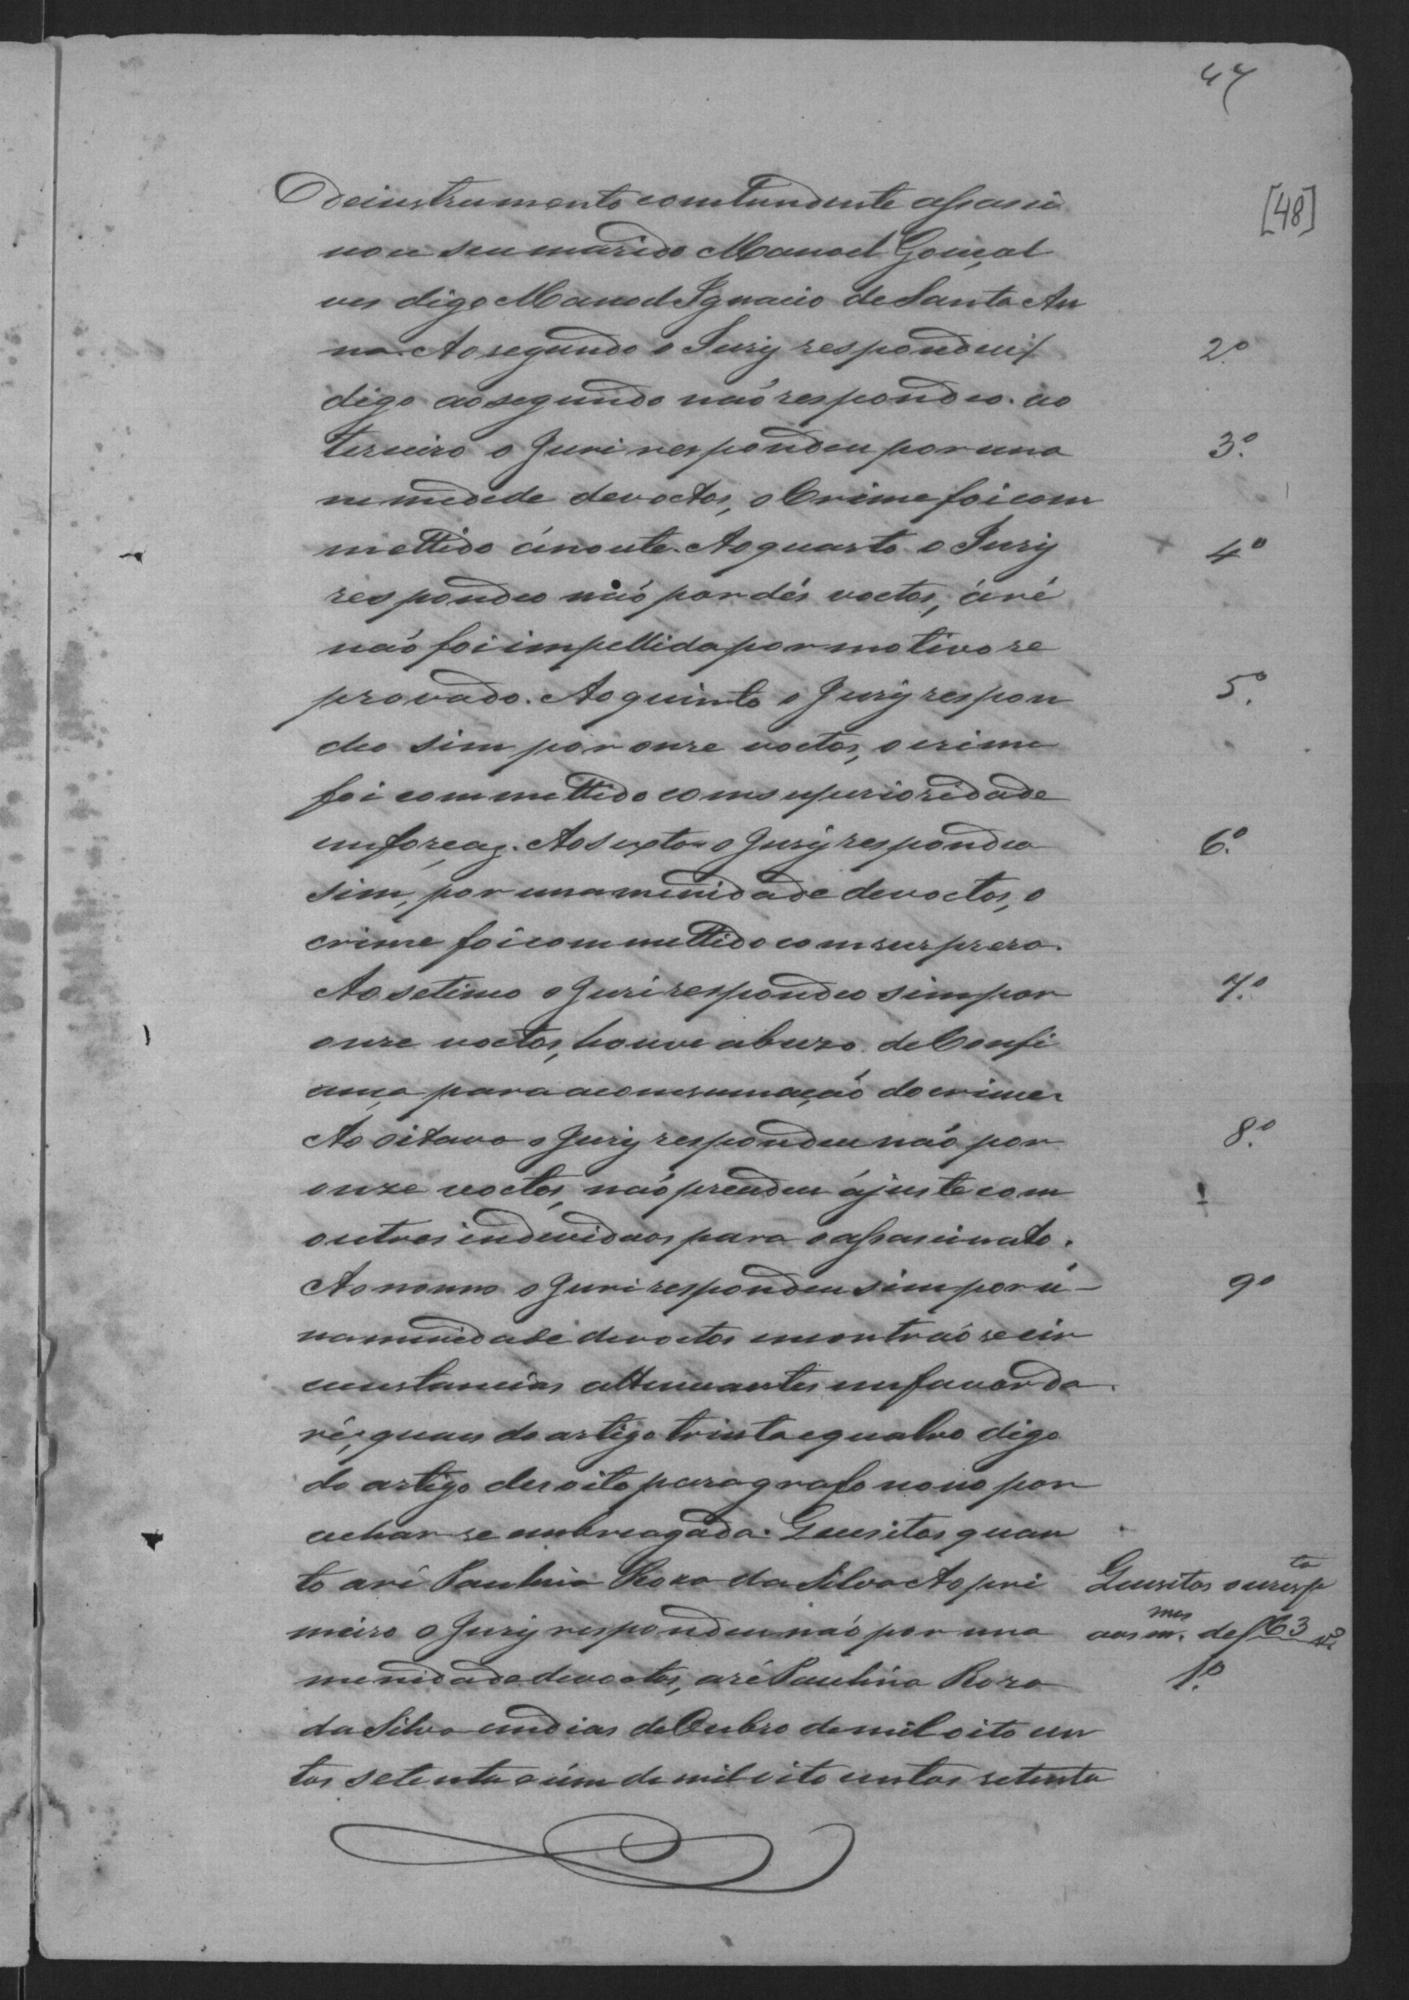 47
[48]
De instrumento contundente assassi
nou seu marido Manoel Gonçal
ves digo Manoel Ignacio de Santa An
na. Ao segundo o Jury respondeu
2º
digo ao segundo naõ respondeo. ao
terceiro o Juri respondeu por una
3º.
nemedede de voctos, o Crime foi com
mettido á noute. Ao quarto o Jury
4º
respondeo não por dés voctos, á ré
naõ foi impellida por motivo re
provado. Ao quinto o Jury respon
5º.
deo sim por onze voctos, o crime
foi commettido com superioridade
em forças. Ao sexto o Jury respondeo
6º.
sim, por unamenidade de voctos, o
crime foi commettido com surpreza.
Ao setimo o Juri respondeo sim por
7º.
onze voctos, houve abuzo de Confi
ança para a consumação do crime.
Ao oitavo o Jury respondeu não por
8º.
onze voctos, não precedeu ájuste com
outros individuos para o assassinato.
Ao nonno o Juri respondeu sim por u-
9º
namenidade de voctos encontraõ se cir
cunstancias attenuantes em favor da
ré, quaes do artigo trinta e quatro digo
do artigo desoito paragrafo nono por
achar se embreagada. Quesitos quan
to a ré Paulina Roza da Silva Ao pri
Quesitos e
meiro o Jury respondeu não por una
aos de f 63
menidade de voctos, a ré Paulina Roza
1º.
da Silva em dias de Outubro de mil oito cen
tos setenta e úm de mil oito centos setenta